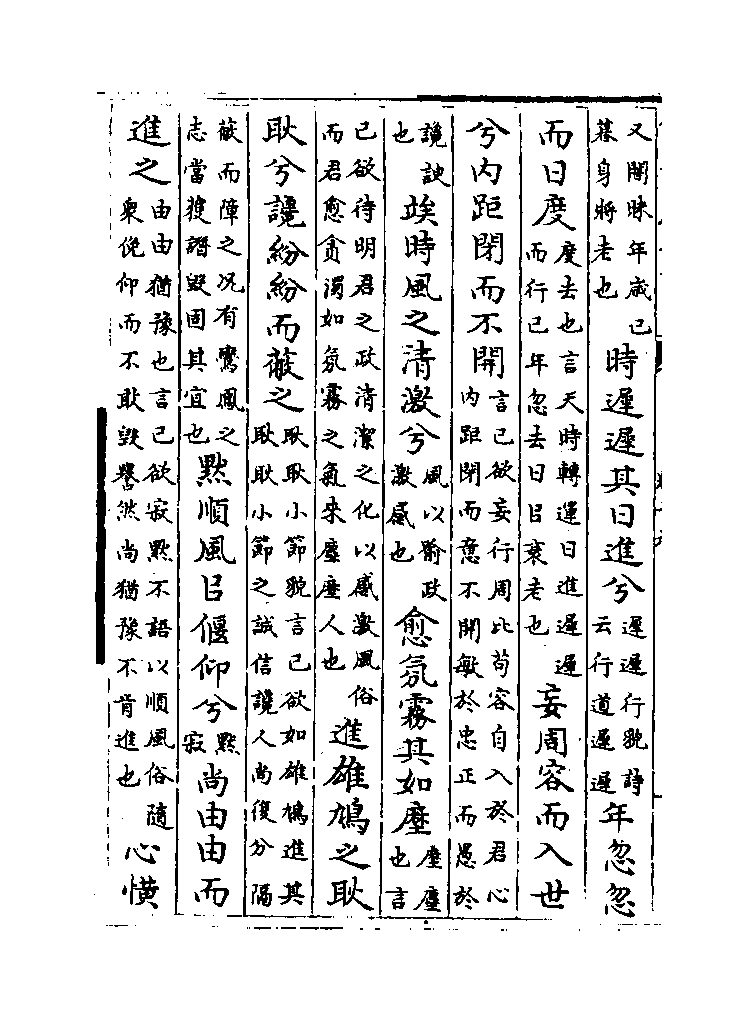 又闇昧年歲已暮身將老也時遲遲其日進兮遲遲行貌詩云行道遲遲年忽忽
而日度度去也言天時轉運日進遲遲而行已年忽去日㠯衰老也妄周容而入世
兮内距閉而不開言已欲妄行周比苟容自入於君心内距閉而意不開敏於忠正而愚於
讒諛也竢時風之清激兮風以喻政激感也愈氛霧其如塺塺塵也言
已欲待明君之政清潔之化以感激風俗而君愈貪濁如氛霧之氣來塵塵人也進雄鳩之耿
耿兮讒紛紛而蔽之耿耿小節貌言已欲如雄鳩進其耿耿小節之誠信讒人尚復分隔
蔽而障之况有鸞鳳之志當獲譖毁固其宜也黙順風㠯偃仰兮黙寂尚由由而
進之由由猶豫也言已欲寂黙不語以順風俗隨衆俛仰而不耿毁譽然尚猶豫不肯進也心懭